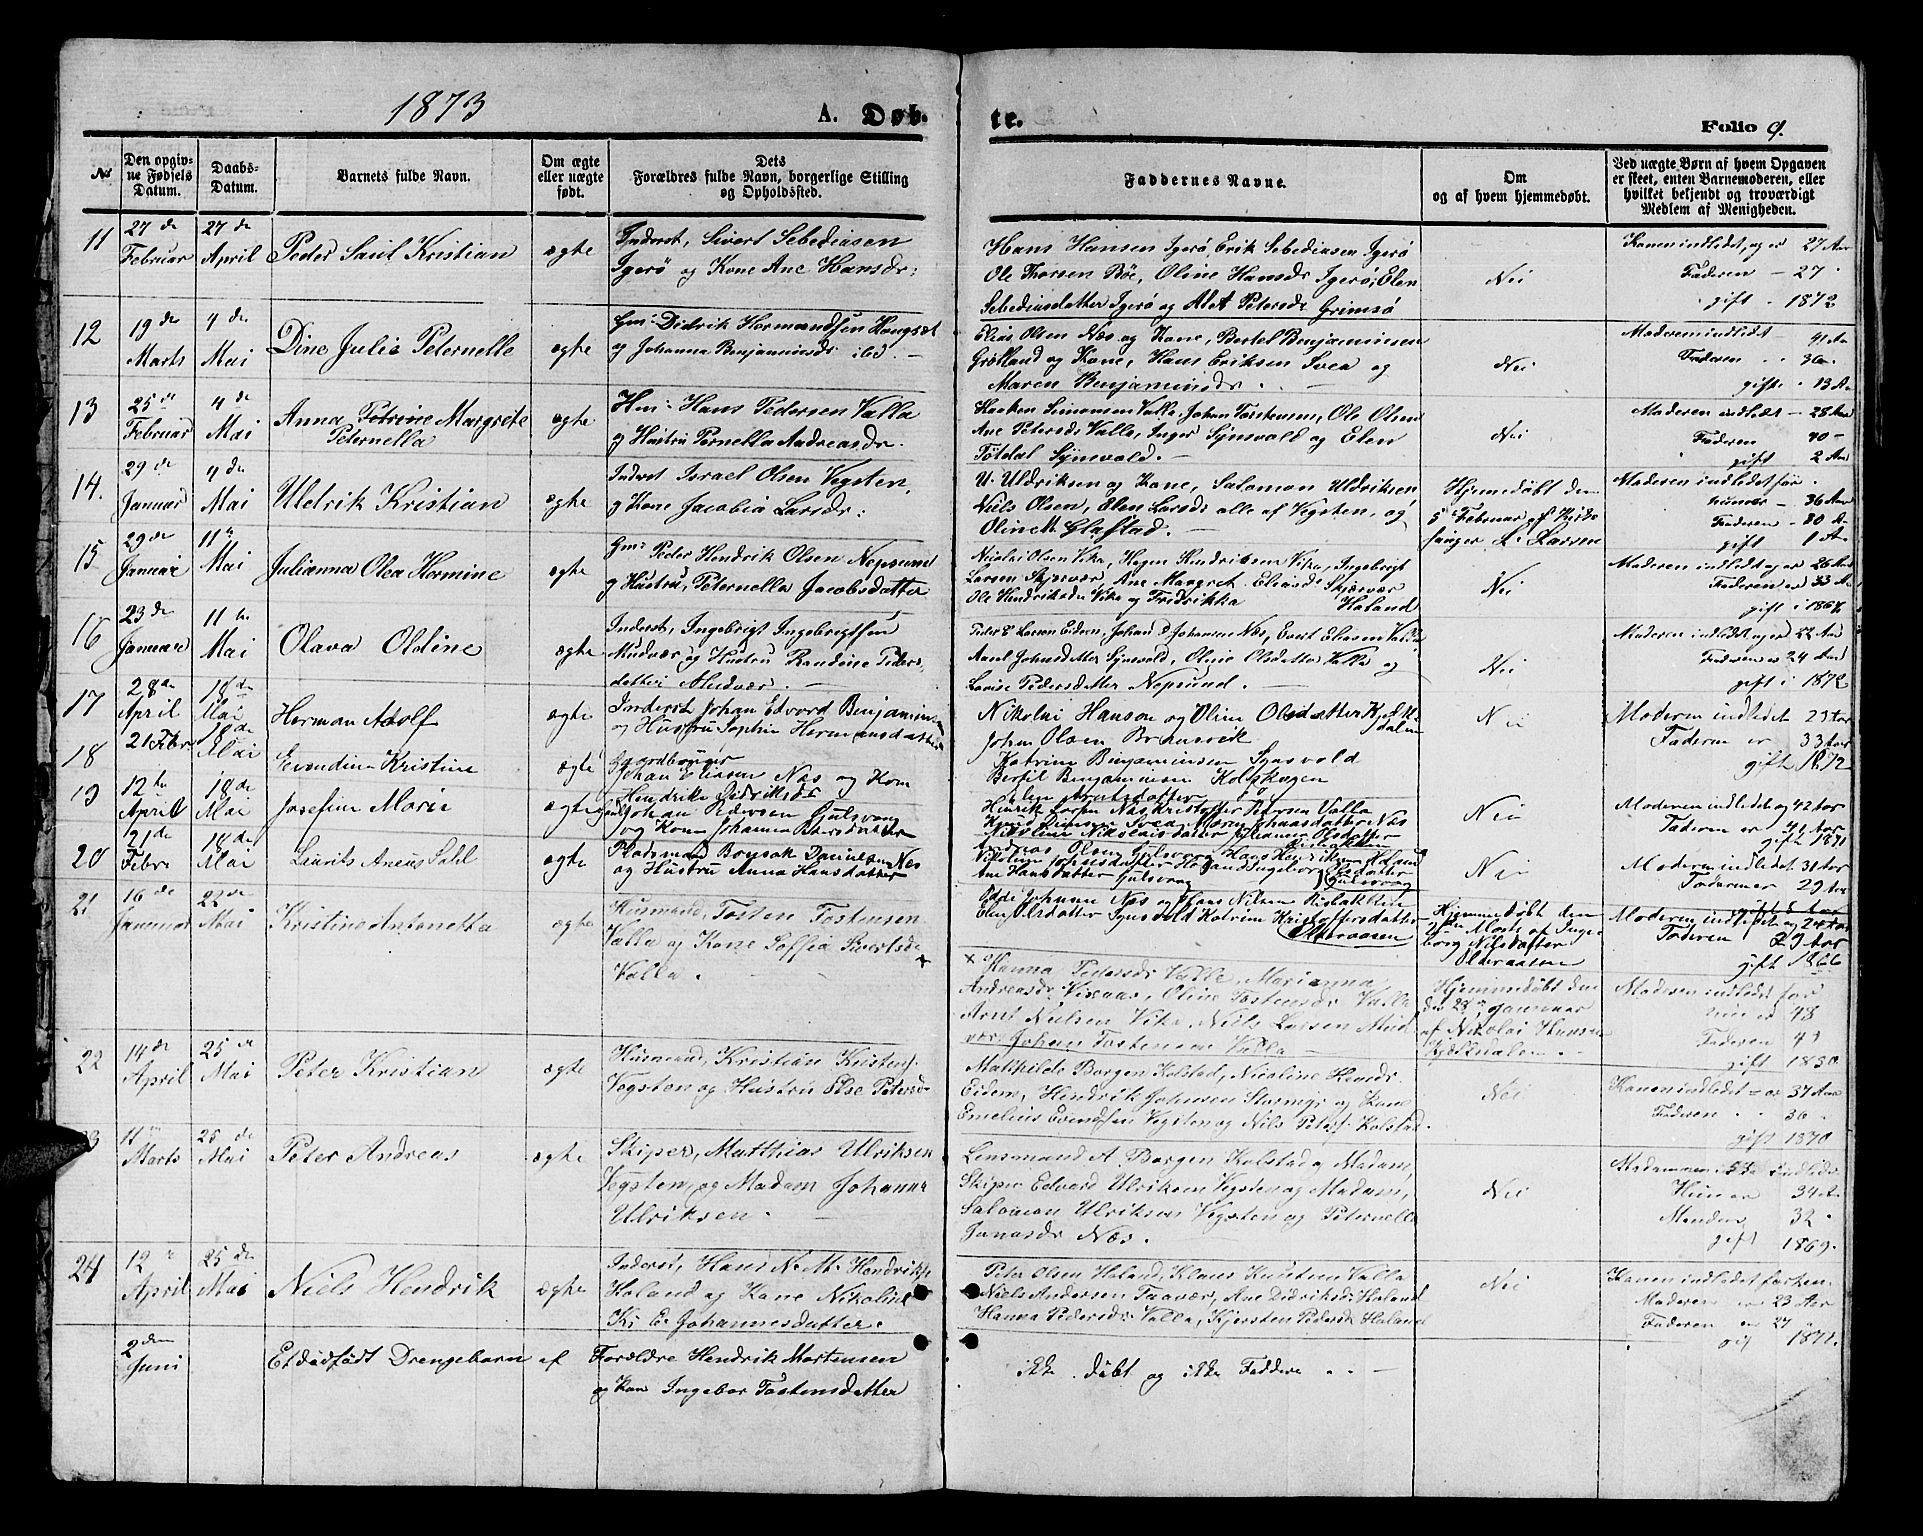 1873 A. Døb- te. Folio 9.
No
Den opgivne Fødsels Datum.
Daabs-Datum.
Barnets fulde Navn.
Om ægte eller uægte født.
Dets Forældres fulde Navn, borgerlige Stilling og Opholdssted.
Faddernes Navne.
Om og af hvem hjemmedøbt.
Ved uægte Børn af hvem Opgaven er skeet, enten Barnemoderen, eller hvilket beslendt og troværdigt Medlem af Menigheden.
11 27de Februar 27de April Peder Saul Kristian ægte
Inderst, Sivert Sebediasen
Igerø og Kone Ane Hansdr:
Hans Hansen Igerø, Erik Sebediasen Igerø
Ole Thorsen Bøe, Oline Hansdr Igerø, Elen
Sebediasdatter Igerø og Alet Petersdr Grimsø
Nei
Konen indledet, og er 27 Aar
Faderen - 27
gift - 1872
12 19de Marts 4de Mai Dine Julie Peternelle ægte
Gm: Didrik Hermandsen Hongset
og Johanna Benjaminsdr ibd. -
Elias Olsen Næs og Kone, Bertel Benjaminsen
Grølland og Kone, Hans Eriksen Svea og
Maren Benjaminsdr. -
Nei
Moderen indledet 41 Aar
Faderen 36
gift 13 Aar
13 25de Februar 4de Mai Anna Petrine Margrete
Peternella ægte
Hm: Hans Pedersen Valla
og Hustru Pernella Andreasdr.
Haaken Simonsen Valla, Johan Torstensen, Ole Olsen
Ane Petersdr Valla, Inger Synsvold og Elen
Totdal Synsvold. -
Nei
Moderen indledt - 28 Aar
Faderen 40 -
gift 2 Aar
14. 29de Januar 4de Mai Uldrik Kristian ægte
Inderst Israel Olsen Vegsten,
og Kone Jacobia Larsdr:
U. Uldriksen og Kone, Salomon Uldriksen
Niels Olsen, Elen Larsdr alle af Vegsten, og
Oline M. Glafstad. -
Hjemmedøbt den
5 Februar af Kirke
sanger L. Larsen
Moderen indledet for
hun er - 36 Aar
Faderen - 30
gift 1 Aar
15 29de Januar 11te Mai Julianna Olea Hermine ægte
Gm: Peder Hendrik Olsen Nepsund
og Hustru, Peternella Jacobsdatter
Nicolai Olsen Vika, Hagen Hendriksen Vika, Ingebrigt
Larsen Skjevær, Ane Margret Eliasdr Skjevær
Ole Hendriksdr Vika og Fridrikka Holand
Nei
Moderen indledet og er 26 Aar
Faderen er 33 Aar
gift i 1867
16 23de Januar 11te Mai Olava Oldine ægte
Inderst, Ingebrigt Ingebrigtsen
Mudvær og Hustru Randine Peders-
datter Mudvær. -
Peder E Larsen Eidem, Johan P Johansen Næs, Evert Eliasen Valla
Amel Johnsdatter Synsvold, Oline Olsdatter Valla og
Lovise Pedersdatter Nepsund. -
Nei
Moderen indledet og er 22 Aar
Faderen er 24 Aar
gift i 1872
17 28de April 18de Mai Herman Adolf ægte
Inderst Johan Edvord Benjaminsen
og Hustru Sophie Hermansdatter
Nikolai Hanson og Oline Olsdatter Kjelk-
dalen
Johan Olsen Brunsvik
Nei
Moderen indledet 23 aar
Faderen er 33 aar
gift 1872
18 21 Febr 18de Mai Evendine Kristine ægte
Gaardbruger
Johan Eliasen Næs og Kone
Hendrike Didriksdr
Katrine Benjaminsen Synsvold
Bertil Benjaminsen Kolskogen
19 12te April 18de Mai Josefine Marie ægte
Johan Pedersen Gulsvaag
og Kone Johanna
Nei
Moderen indledet og 42 aar
Faderen er 42 aar
gift 1871
20 21de Febr 18de Mai Laurits Aneus Dahl ægte
Pladsmand Bensak Danielsen Næs
og Hustru Anna Hansdatter
Nei
Moderen indledet 31 aar
Faderen er 29 aar
21 16de Januar 22de Mai Kristine Antonetta ægte
Husmand, Tosten Tostensen
Valla og Kone Soffia Sivertsdr
Valla. -
Peder Johansen Næs og Hans Nilsen Risbakken
Elen Olsdatter Synsvold Katrine Kristoffersdatter
Olderaasen
Hjemmedøbt den
Marts af Inge-
borg Nilsdatter
Olderaasen
Moderen indledet og 24 aar
Faderen 29 aar
gift 1866
x Hanna Pedersdr Valle, Marianna
Andreasdr Visaas, Oline Tostensdr Valla
Arnt Nielsen Vika, Niels Larsen Mud-
vær, Johan Tostensen Valla -
Hjemmedøbt den
den 23de Januar
af Nikolai Hansen
Kjelkdalen. -
Moderen indledet for
hun er 48
Faderen 49
gift 1850
22 14de April 25de Mai Peter Kristian ægte
Husmand, Kristian Kristens.
Vegsten og Hustru Else Petersdr
Mathilde Borgen Kolstad, Nicoline Hansdr
Eidem, Hendrik Johnsen Stormyr og Kone
Emelius Evendsen Vegsten og Nils Peters. Kolstad.
Nei
Konen indledet - er 37 Aar
Faderen 36
gift 1870
23 11te Marts 25de Mai Peter Andreas ægte
Skiper, Matthias Ulriksen
Vegsten, og Madam Johanna
Ulriksen. -
Lensmand A. Borgen Kolstad og Madam,
Skiper Edvard Ulriksen Vegsten og Madam,
Salomon Ulriksen Vegsten og Peternelle
Jonasdr Næs.
Nei
Hun er 34 Aar
Manden 32
gift 1869.
24 12te April 25de Mai Niels Hendrik ægte
Inderst, Hans N. M. Hendriks.
Holand og Kone Nikoline
K. E. Johannesdatter.
Peter Olsen Holand, Klaus Knutsen Valla
Niels Andersen Tuovær, Ane Didriksdr Holand
Hanna Pedersdr Valla, Kjersten Pedersdr Holand
Nei
Konen indledet forhen
Moderen er 23 Aar
Faderen er 27
gif 1871.
2den Juni Et dødfødt Drengebarn af Forældre Hendrik Mortensen
og Kone Ingebor Tostensdatter
ikke døbt og ikke Faddere . . -